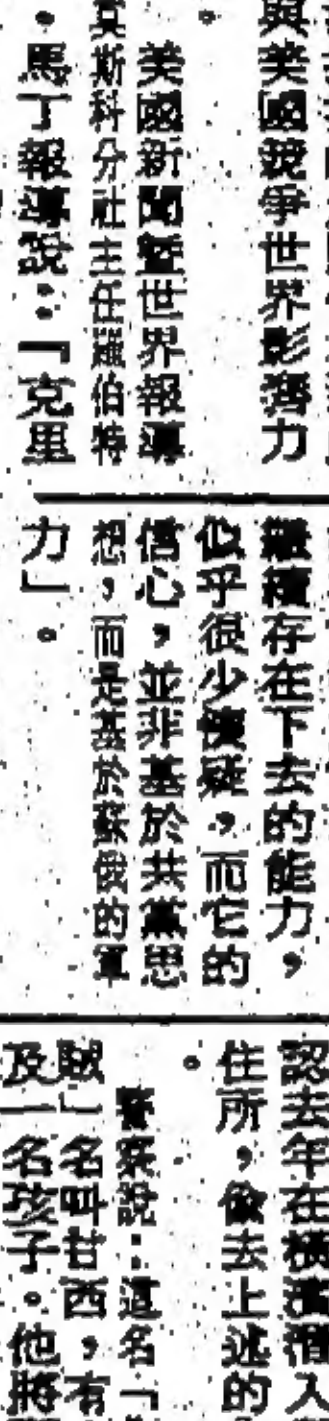 與美國競爭世界影響力
。
美國新聞暨世界報導
莫斯科分社主任羅伯特
・馬丁報導說：『克里
繼續存在下去的能力，
似乎很少懷疑，而它的
信心，並非基於共黨思
想，而是基於蘇俄的軍
力」。
認去年在橫濱潛入
住所，做去上述的
。
警察說：這名「
賊」名叫甘西，有
及一名孩子。他將